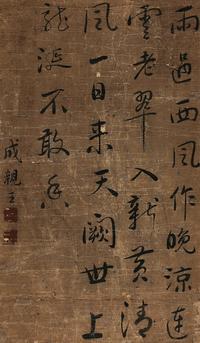 雨過西風作晚涼連
雲老翠入新黃清
風一日来天闕世上
龍涎不敢香
成親王